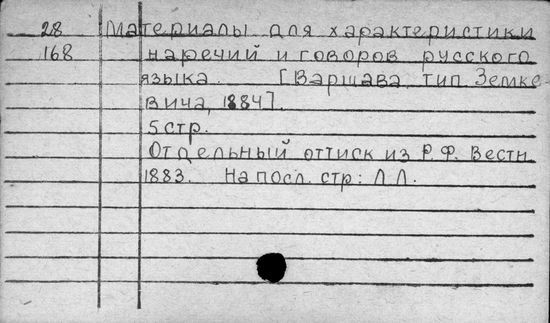 28 Материалы для характеристики
168 наречий и говоров русского
языка. [Варшава, тип Земке-
вича, 1884].
5 стр.
Отдельный оттиск из Р.Ф. Вестн.
1883. На посл. стр: Л.Л.